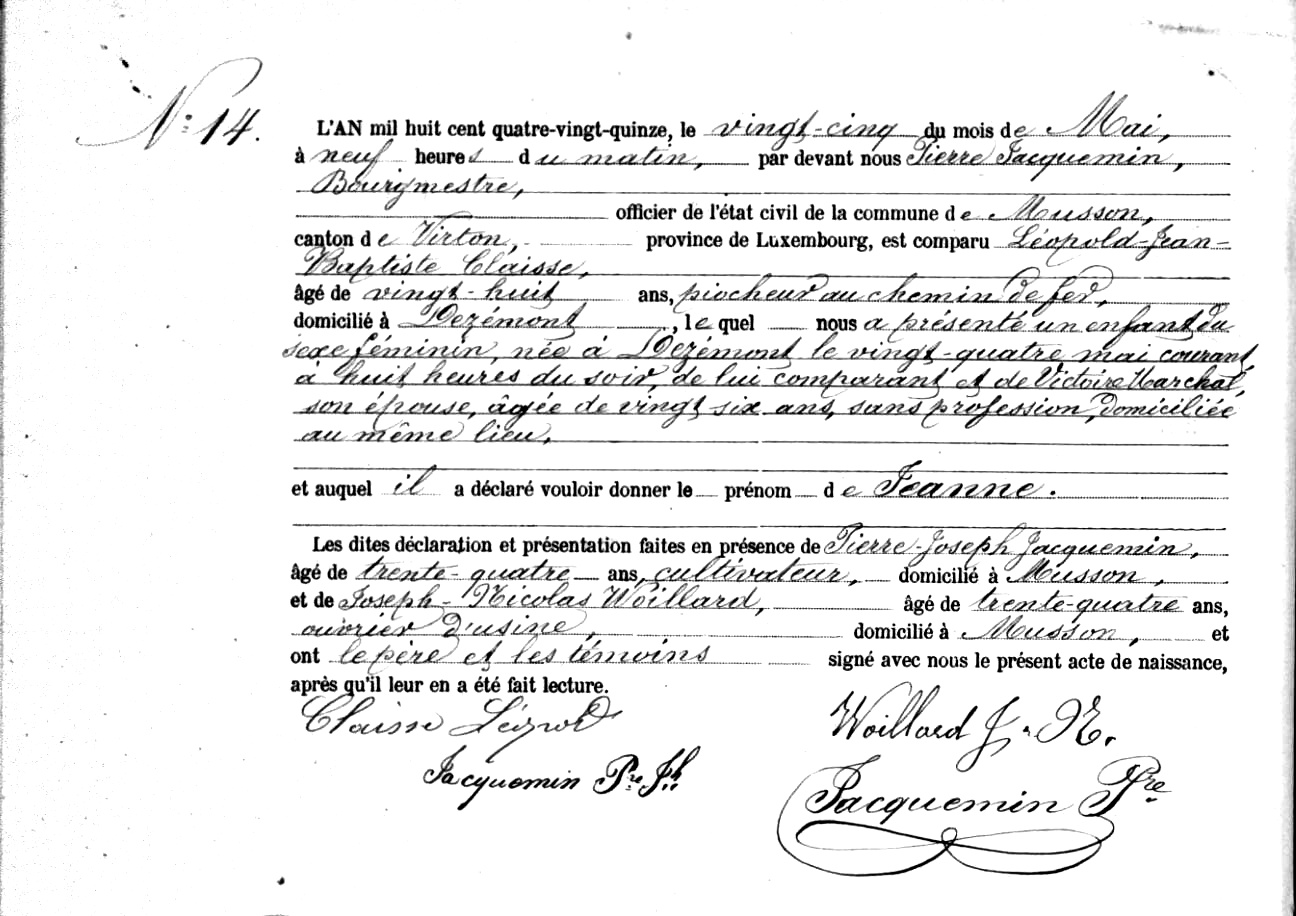 N: 14.
L'AN mil huit cent quatre-vingt-quinze, le vingt-cinq du mois de Mai,
à neuf heures du matin, par devant nous Pierre Jacquemin,
Bourgmestre,
officier de l'état civil de la commune de Musson,
canton de Virton, province de Luxembourg, est comparu Léopold-Jean-
Baptiste Claisse,
âgé de vingt-huit ans, piocheur au chemin de fer,
domicilié à Dezémont, le quel nous a présenté un enfant du
sexe féminin, née à Dezémont le vingt-quatre mai courant,
à huit heures du soir, de lui comparant et de Victoire Marchal,
son épouse, âgée de vingt six ans, sans profession, domiciliée
au même lieu.
et auquel il a déclaré vouloir donner le prénom de Jeanne.
Les dites déclaration et présentation faites en présence de Pierre-Joseph Jacquemin,
âgé de trente-quatre ans, cultivateur, domicilié à Musson,
et de Joseph-Nicolas Woillard, âgé de trente-quatre ans,
ouvrier d'usine, domicilié à Musson, et
ont le père et les témoins signé avec nous le présent acte de naissance,
après qu'il leur en a été fait lecture.
Claisse Léopold
Woillard J. N.
Jacquemin Pre Jh.
Jacquemin Pre